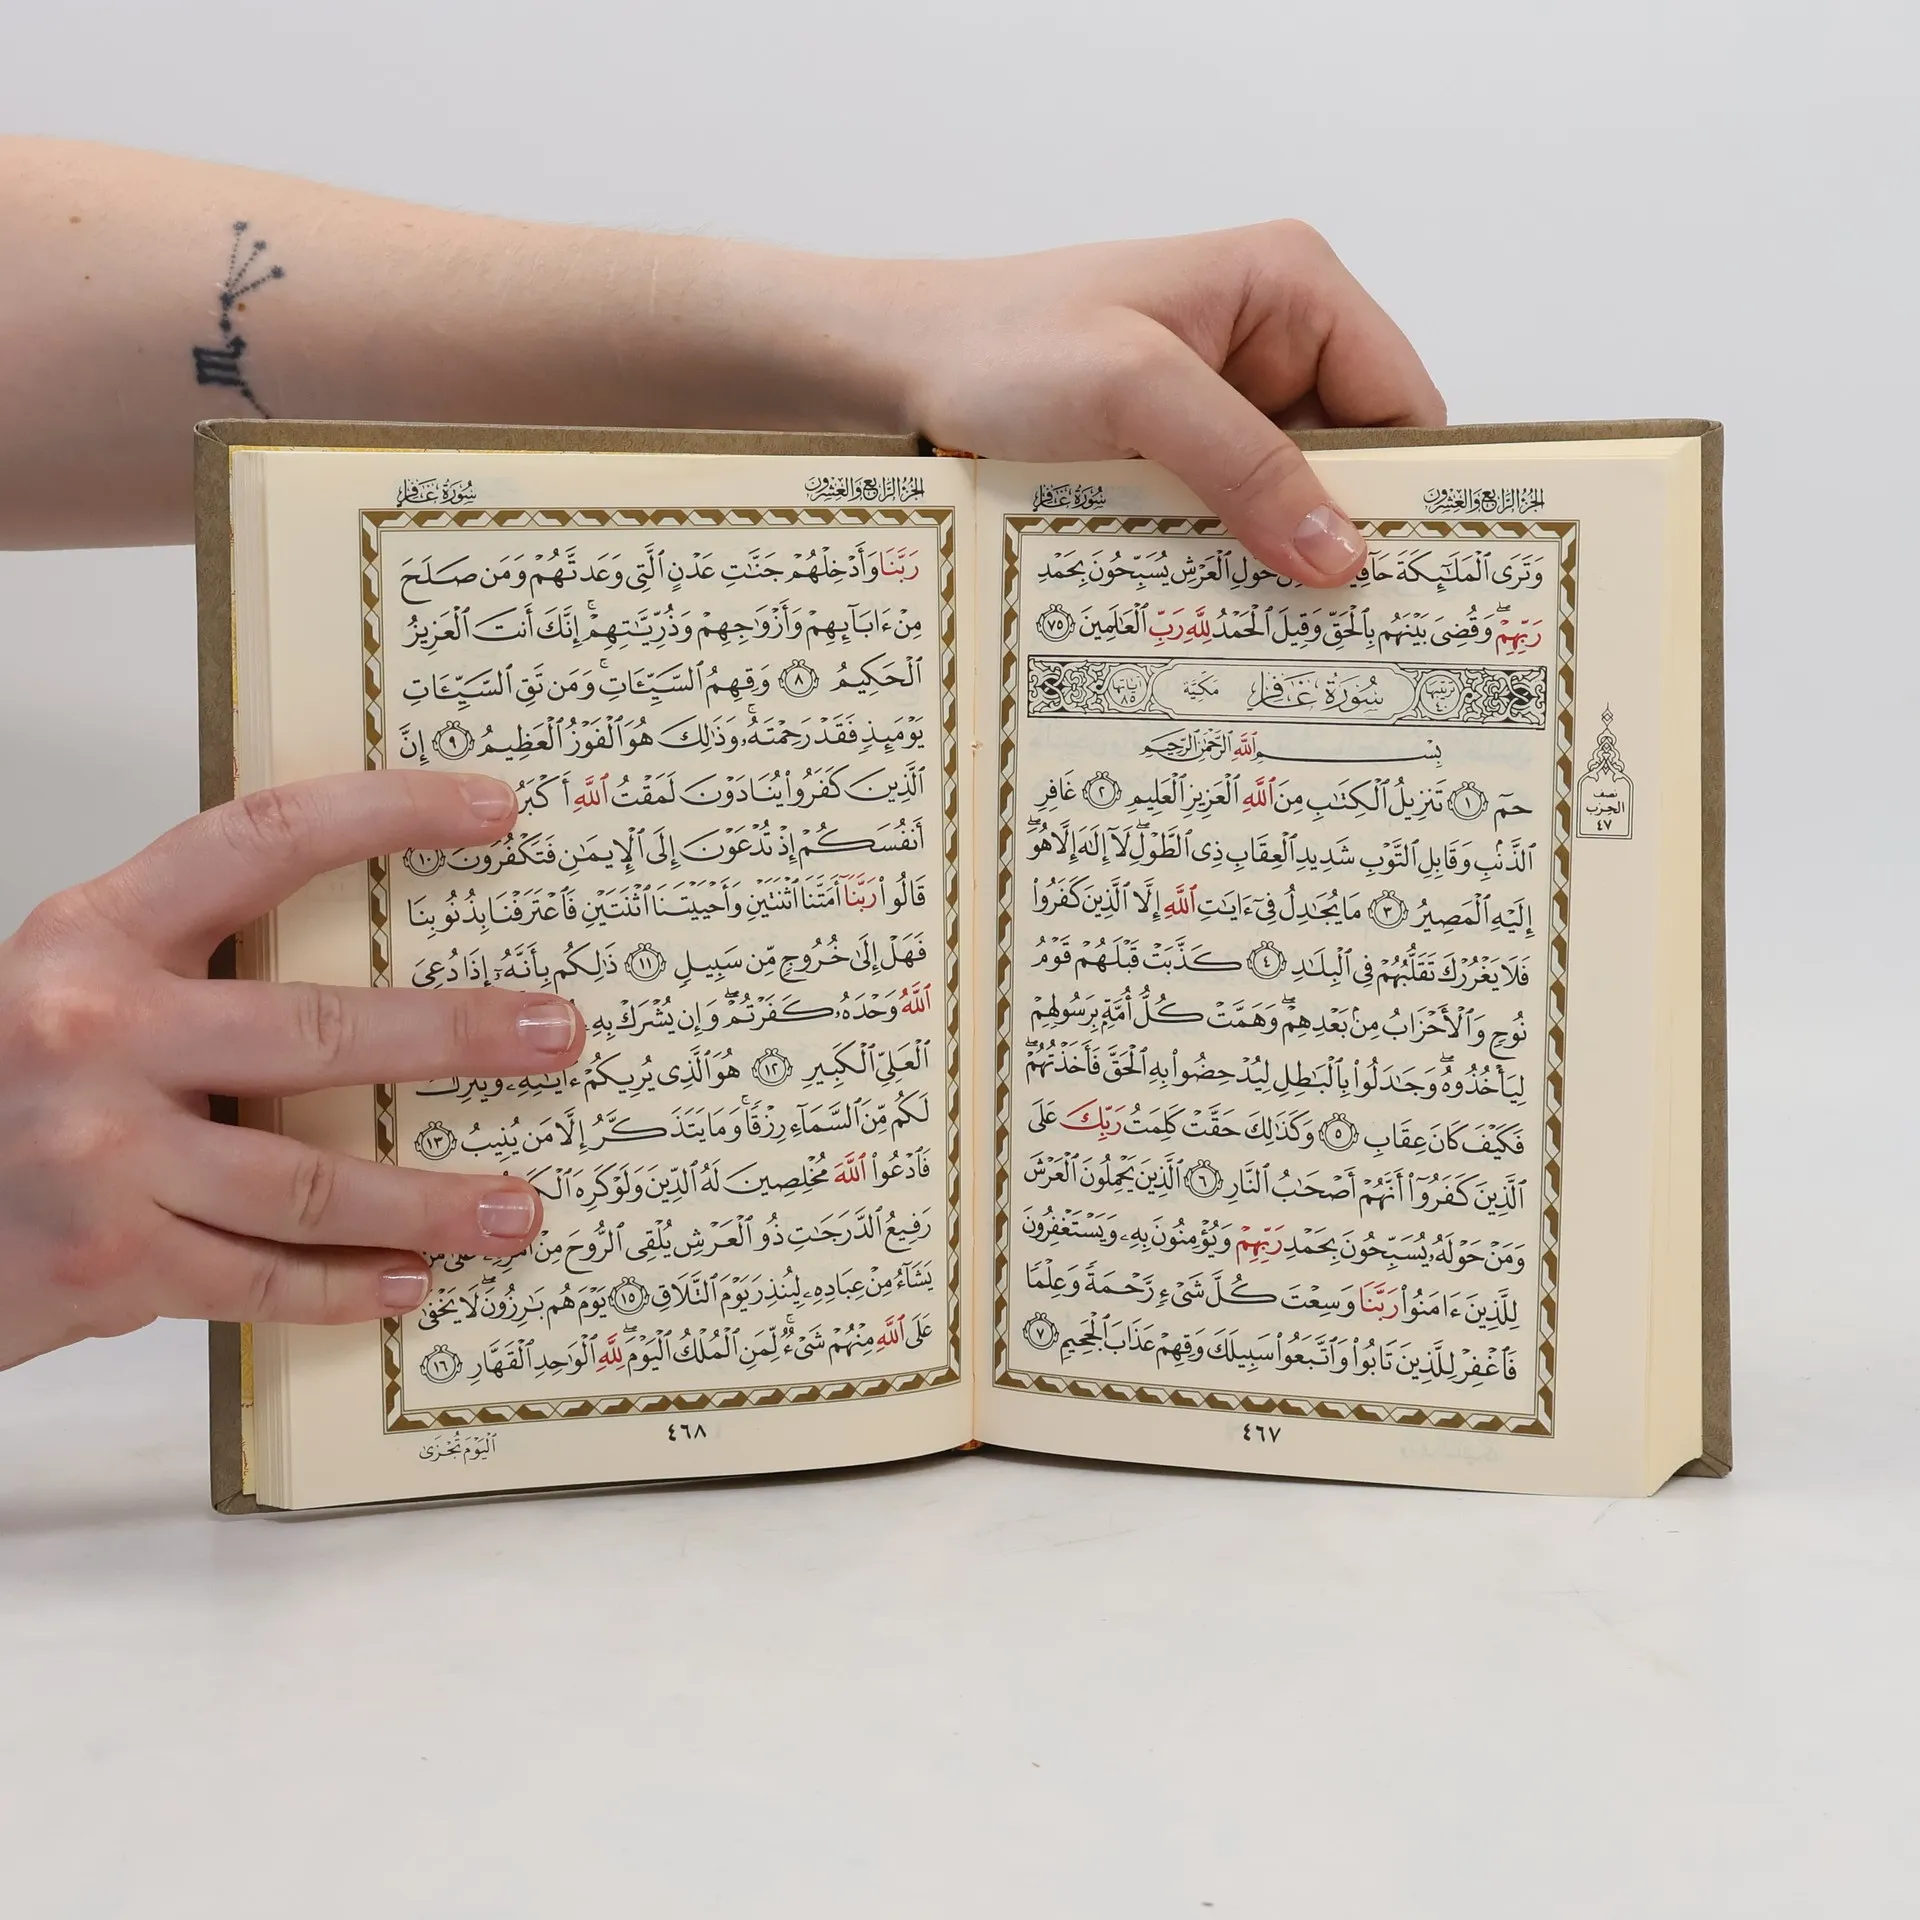 الجزء الرابع والعشرون
سورة غافر
وَتَرَى ٱلْمَلَٰٓئِكَةَ حَوْلِ ٱلْعَرْشِ يُسَبِّحُونَ بِحَمْدِ
رَبِّهِمْ ۖ وَقُضِىَ بَيْنَهُم بِٱلْحَقِّ وَقِيلَ ٱلْحَمْدُ لِلَّهِ رَبِّ ٱلْعَٰلَمِينَ ٧٥
ترتيبها ٤٠ سورة غافر مكية آياتها ٨٥
بِسْمِ ٱللَّهِ ٱلرَّحْمَٰنِ ٱلرَّحِيمِ
حمٓ ١ تَنزِيلُ ٱلْكِتَٰبِ مِنَ ٱللَّهِ ٱلْعَزِيزِ ٱلْعَلِيمِ ٢ غَافِرِ
ٱلذَّنۢبِ وَقَابِلِ ٱلتَّوْبِ شَدِيدِ ٱلْعِقَابِ ذِى ٱلطَّوْلِ ۖ لَآ إِلَٰهَ إِلَّا هُوَ ۖ
إِلَيْهِ ٱلْمَصِيرُ ٣ مَا يُجَٰدِلُ فِىٓ ءَايَٰتِ ٱللَّهِ إِلَّا ٱلَّذِينَ كَفَرُوا۟
فَلَا يَغْرُرْكَ تَقَلُّبُهُمْ فِى ٱلْبِلَٰدِ ٤ كَذَّبَتْ قَبْلَهُمْ قَوْمُ
نُوحٍ وَٱلْأَحْزَابُ مِنۢ بَعْدِهِمْ ۖ وَهَمَّتْ كُلُّ أُمَّةٍۭ بِرَسُولِهِمْ
لِيَأْخُذُوهُ ۖ وَجَٰدَلُوا۟ بِٱلْبَٰطِلِ لِيُدْحِضُوا۟ بِهِ ٱلْحَقَّ فَأَخَذْتُهُمْ ۖ
فَكَيْفَ كَانَ عِقَابِ ٥ وَكَذَٰلِكَ حَقَّتْ كَلِمَتُ رَبِّكَ عَلَى
ٱلَّذِينَ كَفَرُوٓا۟ أَنَّهُمْ أَصْحَٰبُ ٱلنَّارِ ٦ ٱلَّذِينَ يَحْمِلُونَ ٱلْعَرْشَ
وَمَنْ حَوْلَهُۥ يُسَبِّحُونَ بِحَمْدِ رَبِّهِمْ وَيُؤْمِنُونَ بِهِۦ وَيَسْتَغْفِرُونَ
لِلَّذِينَ ءَامَنُوا۟ رَبَّنَا وَسِعْتَ كُلَّ شَىْءٍ رَّحْمَةً وَعِلْمًا
فَٱغْفِرْ لِلَّذِينَ تَابُوا۟ وَٱتَّبَعُوا۟ سَبِيلَكَ وَقِهِمْ عَذَابَ ٱلْجَحِيمِ ٧
نصف
الحزب
٤٧
٤٦٧
الجزء الرابع والعشرون
سورة غافر
رَبَّنَا وَأَدْخِلْهُمْ جَنَّٰتِ عَدْنٍ ٱلَّتِى وَعَدتَّهُمْ وَمَن صَلَحَ
مِنْ ءَابَآئِهِمْ وَأَزْوَٰجِهِمْ وَذُرِّيَّٰتِهِمْ ۚ إِنَّكَ أَنتَ ٱلْعَزِيزُ
ٱلْحَكِيمُ ٨ وَقِهِمُ ٱلسَّيِّـَٔاتِ ۚ وَمَن تَقِ ٱلسَّيِّـَٔاتِ
يَوْمَئِذٍ فَقَدْ رَحِمْتَهُۥ ۚ وَذَٰلِكَ هُوَ ٱلْفَوْزُ ٱلْعَظِيمُ ٩ إِنَّ
ٱلَّذِينَ كَفَرُوا۟ يُنَادَوْنَ لَمَقْتُ ٱللَّهِ أَكْبَرُ
أَنفُسَكُمْ إِذْ تُدْعَوْنَ إِلَى ٱلْإِيمَٰنِ فَتَكْفُرُونَ ١٠
قَالُوا۟ رَبَّنَآ أَمَتَّنَا ٱثْنَتَيْنِ وَأَحْيَيْتَنَا ٱثْنَتَيْنِ فَٱعْتَرَفْنَا بِذُنُوبِنَا
فَهَلْ إِلَىٰ خُرُوجٍ مِّن سَبِيلٍ ١١ ذَٰلِكُم بِأَنَّهُۥٓ إِذَا دُعِىَ
ٱللَّهُ وَحْدَهُۥ كَفَرْتُمْ ۖ وَإِن يُشْرَكْ بِهِۦ
ٱلْعَلِىِّ ٱلْكَبِيرِ ١٢ هُوَ ٱلَّذِى يُرِيكُمْ ءَايَٰتِهِۦ وَيُنَزِّلُ
لَكُم مِّنَ ٱلسَّمَآءِ رِزْقًا ۚ وَمَا يَتَذَكَّرُ إِلَّا مَن يُنِيبُ ١٣
فَٱدْعُوا۟ ٱللَّهَ مُخْلِصِينَ لَهُ ٱلدِّينَ وَلَوْ كَرِهَ
رَفِيعُ ٱلدَّرَجَٰتِ ذُو ٱلْعَرْشِ يُلْقِى ٱلرُّوحَ مِنْ أَمْرِهِۦ عَلَىٰ مَن
يَشَآءُ مِنْ عِبَادِهِۦ لِيُنذِرَ يَوْمَ ٱلتَّلَاقِ ١٥ يَوْمَ هُم بَٰرِزُونَ ۖ لَا يَخْفَىٰ
عَلَى ٱللَّهِ مِنْهُمْ شَىْءٌ ۚ لِّمَنِ ٱلْمُلْكُ ٱلْيَوْمَ ۖ لِلَّهِ ٱلْوَٰحِدِ ٱلْقَهَّارِ ١٦
٤٦٨
ٱلْيَوْمَ تُجْزَىٰ